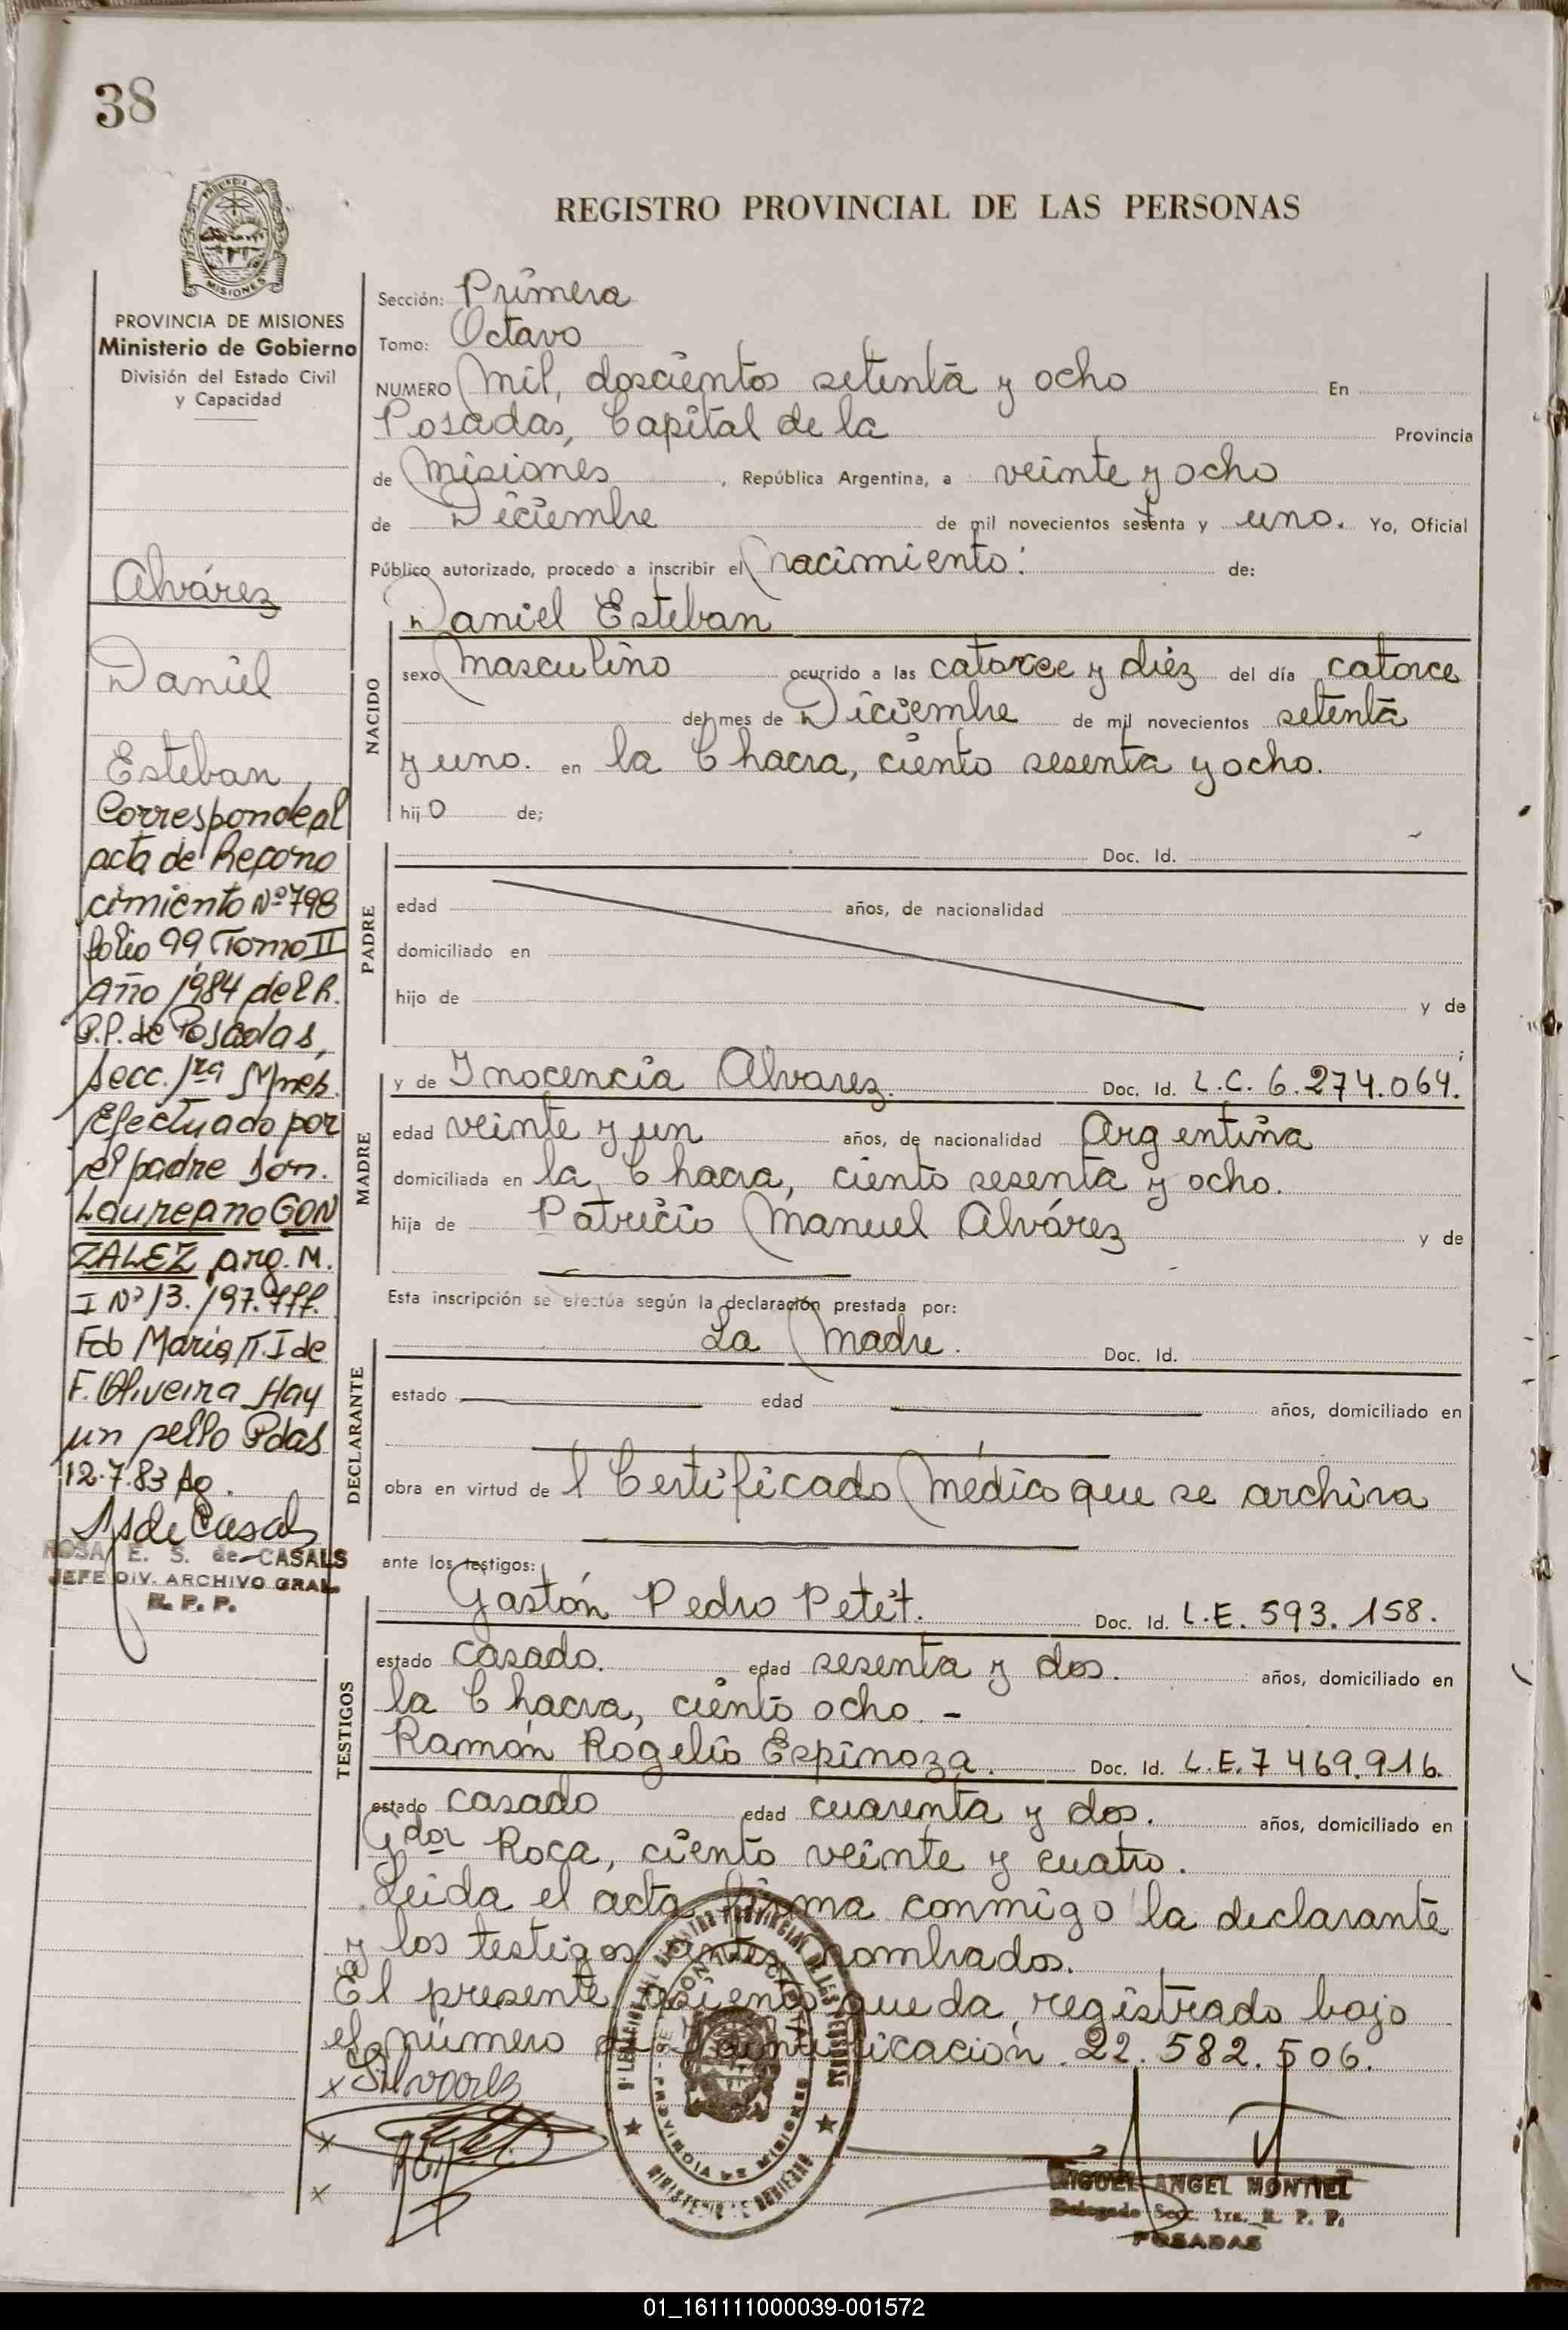 38
PROVINCIA DE MISIONES
Ministerio de Gobierno
División del Estado Civil
y Capacidad
Alvárez
Daniel
Esteban
Corresponde al
acta de Recono
cimiento Nº 798
folio 99, Tomo II
año 1984 del R.
P.P. de Posadas,
secc. 1ra Mnes.
Efectuado por
el padre Don.
Laureano GON
ZALEZ, arg. M.
I Nº 13.197.777.
Fdo Maria T. I de
F. Oliveira Hay
un sello Pdas
12.7.83 Ag.
ROSA E. S. de CASALS
JEFE DIV. ARCHIVO GRAL.
R. P. P.
REGISTRO PROVINCIAL DE LAS PERSONAS
Sección: Primera
Tomo: Octavo
NUMERO Mil, doscientos setenta y ocho En
Posadas, Capital de la Provincia
de Misiones, República Argentina, a veinte y ocho
de Diciembre de mil novecientos setenta y uno. Yo, Oficial
Público autorizado, procedo a inscribir el Nacimiento: de:
NACIDO
Daniel Esteban
sexo Masculino ocurrido a las catorce y diez del día catorce
del mes de Diciembre de mil novecientos setenta
y uno. en la Chacra, ciento sesenta y ocho.
hijo de;
PADRE
Doc. Id.
edad años, de nacionalidad
domiciliado en
hijo de y de
;
MADRE
y de Inocencia Alvarez. Doc. Id. L.C. 6.274.064.
edad veinte y un años, de nacionalidad Argentina
domiciliada en la Chacra, ciento sesenta y ocho.
hija de Patricio Manuel Alvárez y de
Esta inscripción se efectúa según la declaración prestada por:
DECLARANTE
La Madre. Doc. Id.
estado edad años, domiciliado en
obra en virtud de l Certificado Médico que se archiva
ante los testigos:
TESTIGOS
Gastón Pedro Petit. Doc. Id. L.E. 593.158.
estado casado. edad sesenta y dos. años, domiciliado en
la Chacra, ciento ocho. -
Ramón Rogelio Espinoza. Doc. Id. L.E. 7469.916.
estado casado edad cuarenta y dos. años, domiciliado en
Gdor Roca, ciento veinte y cuatro.
Leida el acta firma conmigo la declarante
y los testigos antes nombrados.
El presente asiento queda, registrado bajo
el número de identificación. 22.582.506.
PROVINCIA DE MISIONES
MINISTERIO DE GOBIERNO
MIGUEL ANGEL MONTIEL
Delegado Secc. 1ra. R. P. P.
POSADAS
01_161111000039-001572